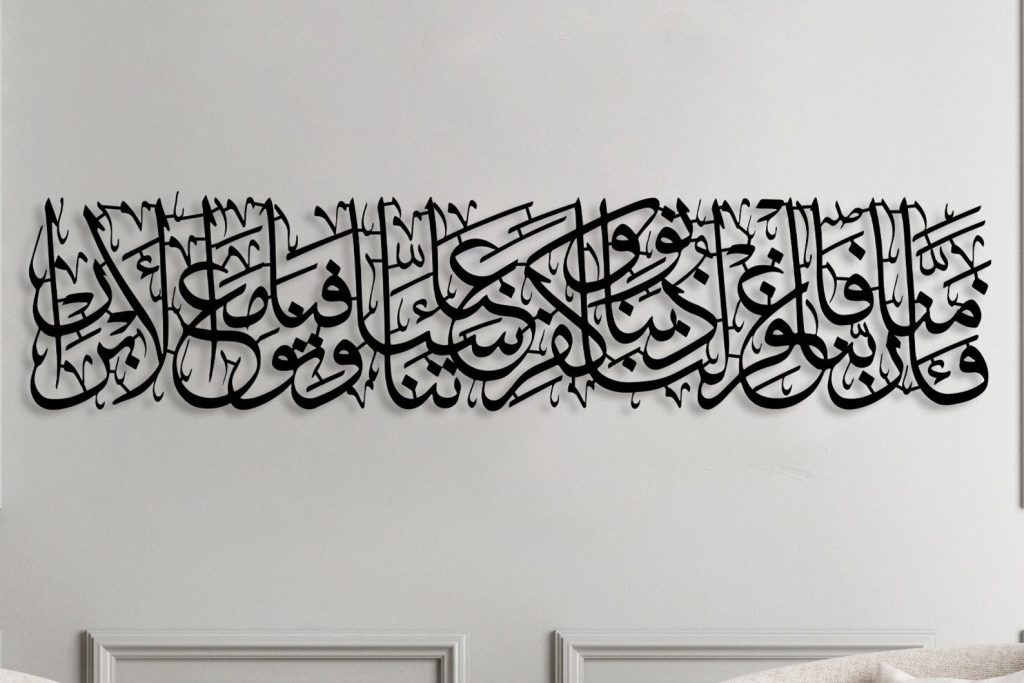 فَآمَنَّا رَبَّنَا فَاغْفِرْ لَنَا ذُنُوبَنَا وَكَفِّرْ عَنَّا سَيِّئَاتِنَا وَتَوَفَّنَا مَعَ الْأَبْرَارِ